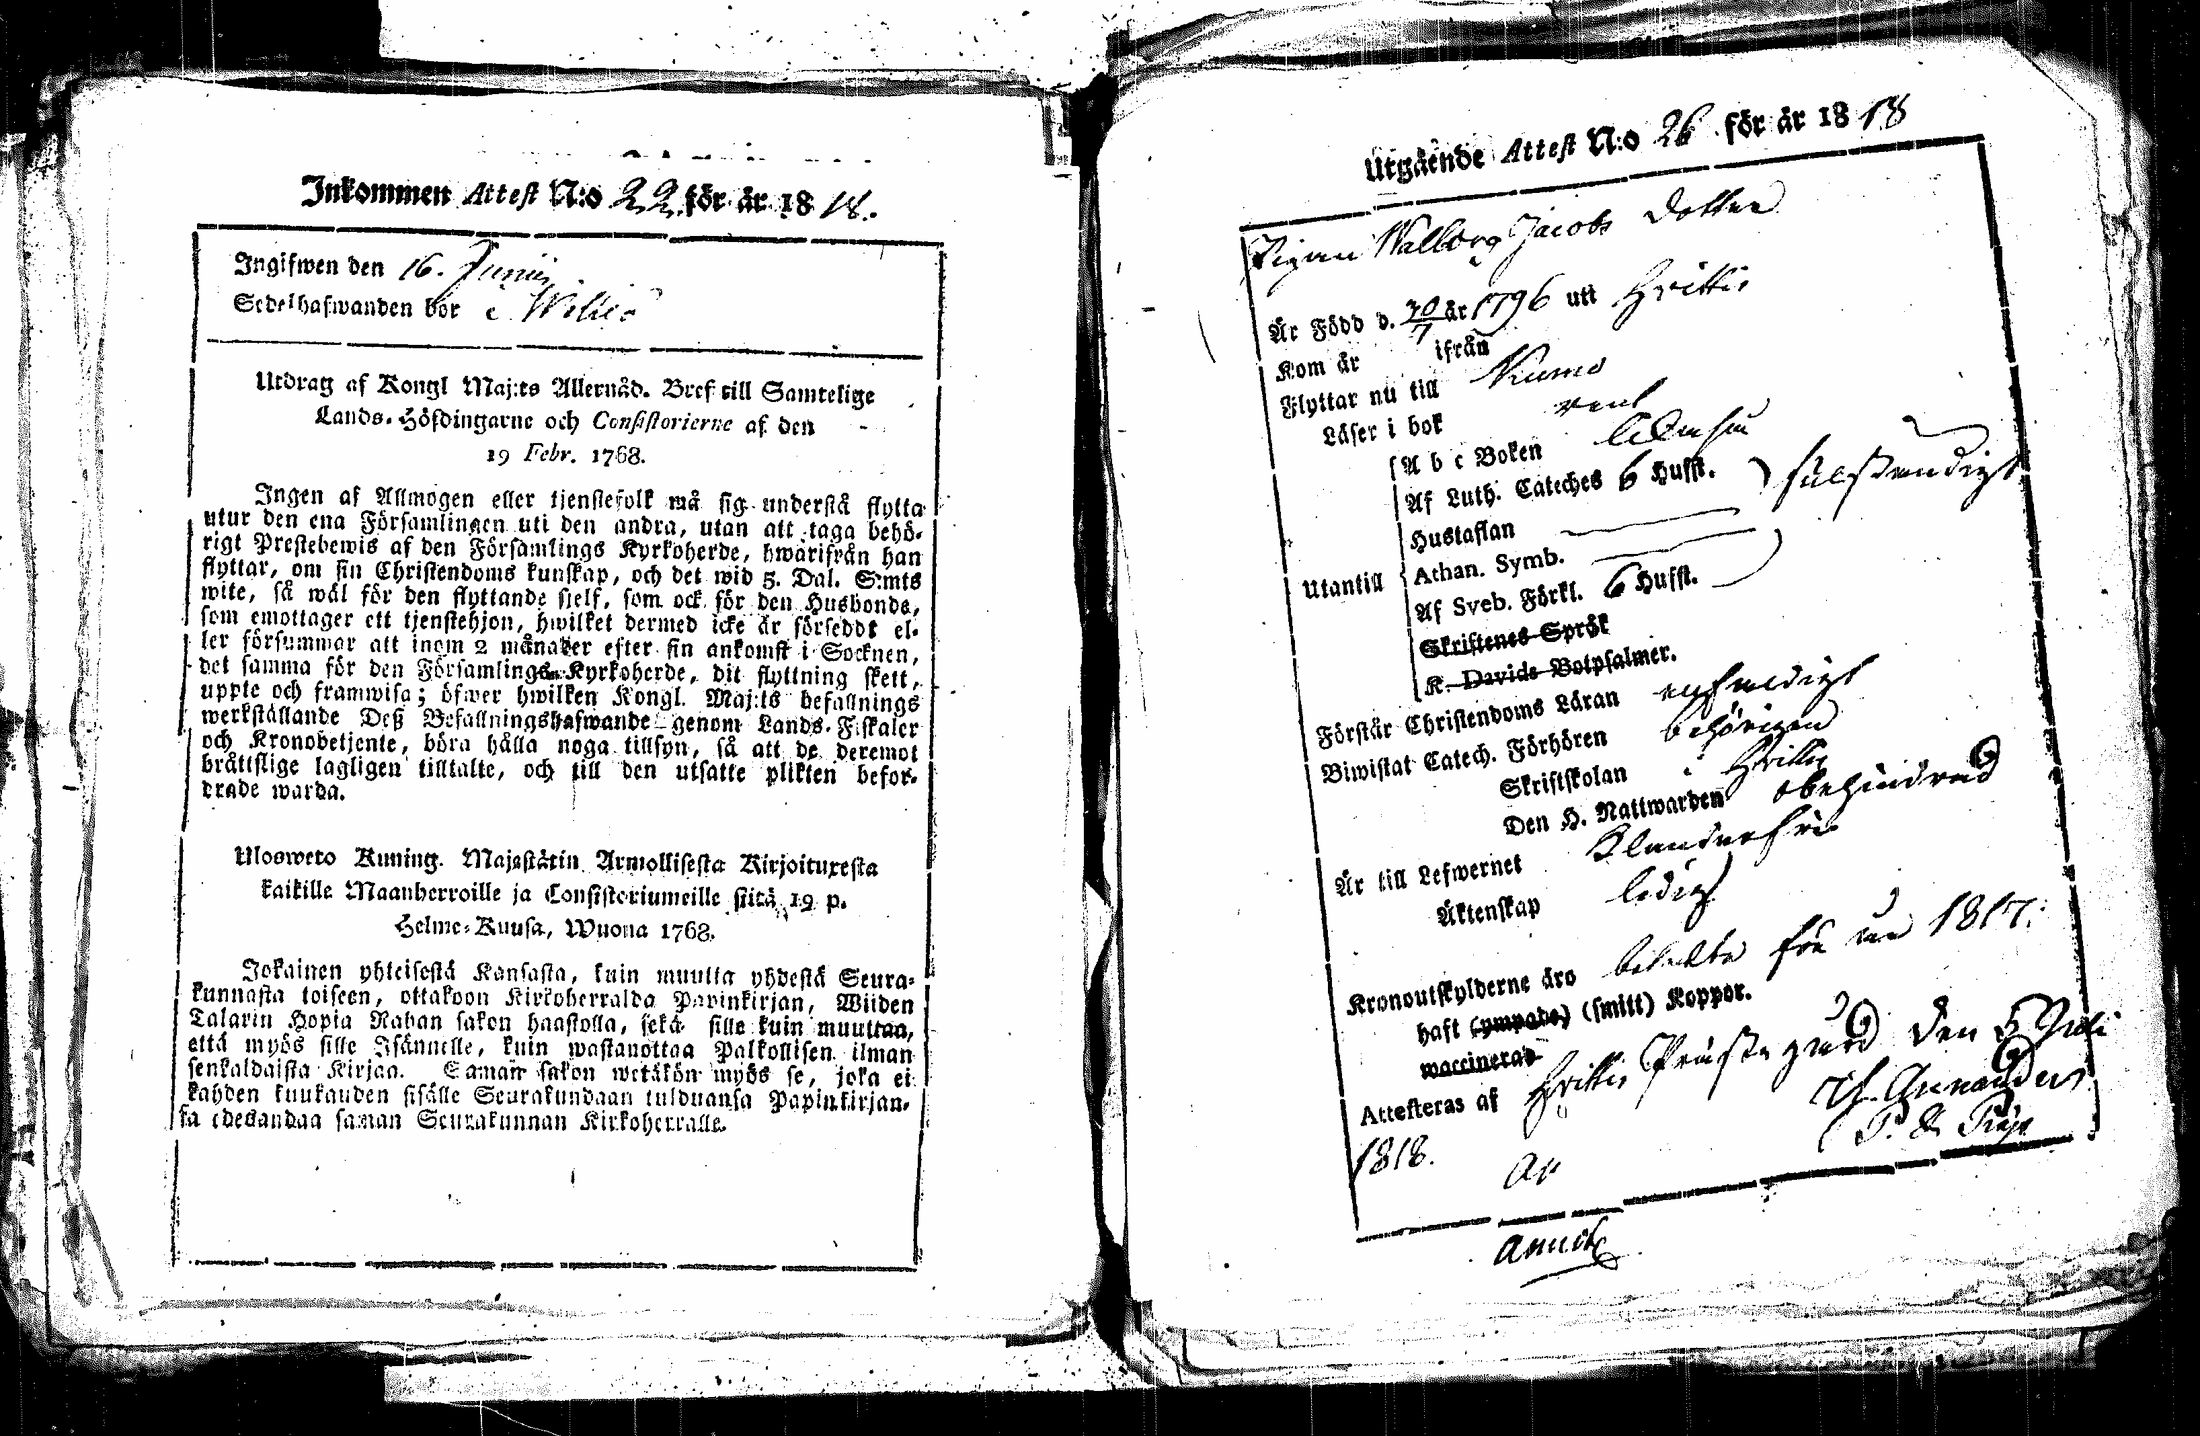 Inkommen Attest N:o 22 för år 18 18.
Ingifwen den 16. Junii
Sedelhafwanden bor i
Utdrag af Kongl Maj:ts Allernåd. Bref till Samtelige
Lands-Höfdingarne och Consistorierne af den
19 Febr. 1768.
Ingen af Allmogen eller tjenstefolk må sig understå flytta
utur den ena Församlingen uti den andra, utan att taga behö-
rigt Prestebewis af den Församlings Kyrkoherde, hwarifrån han
flyttar, om sin Christendoms kunskap, och det wid 5. Dal. S:mts
wite, så wäl för den flyttande sjelf, som ock för den Husbonde,
som emottager ett tjenstehjon, hwilket dermed icke är försedt el-
ler försummar att inom 2 månader efter sin ankomst i Socknen,
det samma för den Församlings Kyrkoherde, dit flyttning skett,
uppte och framwisa; öfwer hwilken Kongl. Maj:ts befallnings
werkställande Deß Befallningshafwande genom Lands-Fiskaler
och Kronobetjente, böra hålla noga tillsyn, så att de deremot
bråttslige lagligen tilltalte, och till den utsatte plikten befor-
drade warda.
Ulosweto Kuning. Majestätin Armollisesta Kirjoituxesta
kaikille Maanherroille ja Consistoriumeille siitä 19 p.
Helme-Kuusa, Wuona 1768.
Jokainen yhteisestä Kansasta, kuin muutta yhdestä Seura-
kunnasta toiseen, ottakoon Kirkoherralda Papinkirjan, Wiiden
Talarin Hopia Rahan sakon haastolla, sekä sille kuin muuttaa,
että myös sille Isännelle, kuin wastanottaa Palkollisen ilman
senkaldaista Kirjaa. Saman sakon wetäkön myös se, joka ei
kahden kuukauden sisälle Seurakundaan tulduansa Papinkirjan-
sa edesandaa saman Seurakunnan Kirkoherralle.
Utgående Attest N:o 26 för år 18 18
Pigan Walborg Jacobs Dotter
Är Född d. 20/7 år 1796 uti Hvittis
Kom år ifrån
Flyttar nu till Kiumo
Läser i bok rent
A b c Boken
Af Luth. Cateches 6 Hufst. fulständigt
Hustaflan
Utantill Athan. Symb.
Af Sveb. Förkl. 6 Hufst.
Skriftenes Språk
K. Davids Botpsalmer.
Förstår Christendoms Läran enfaldigt
Biwistat Catech. Förhören behörigen
Skriftskolan i Hvittis
Den H. Nattwarden obehindrad
Är till Lefwernet Klanderfri
Äktenskap ledig
Kronoutskylderne äro betalta för år 1817.
haft (ympade) (smitt) Koppor.
waccinerad
Attesteras af Hvittis Prästegård den 5 Juli
1818.